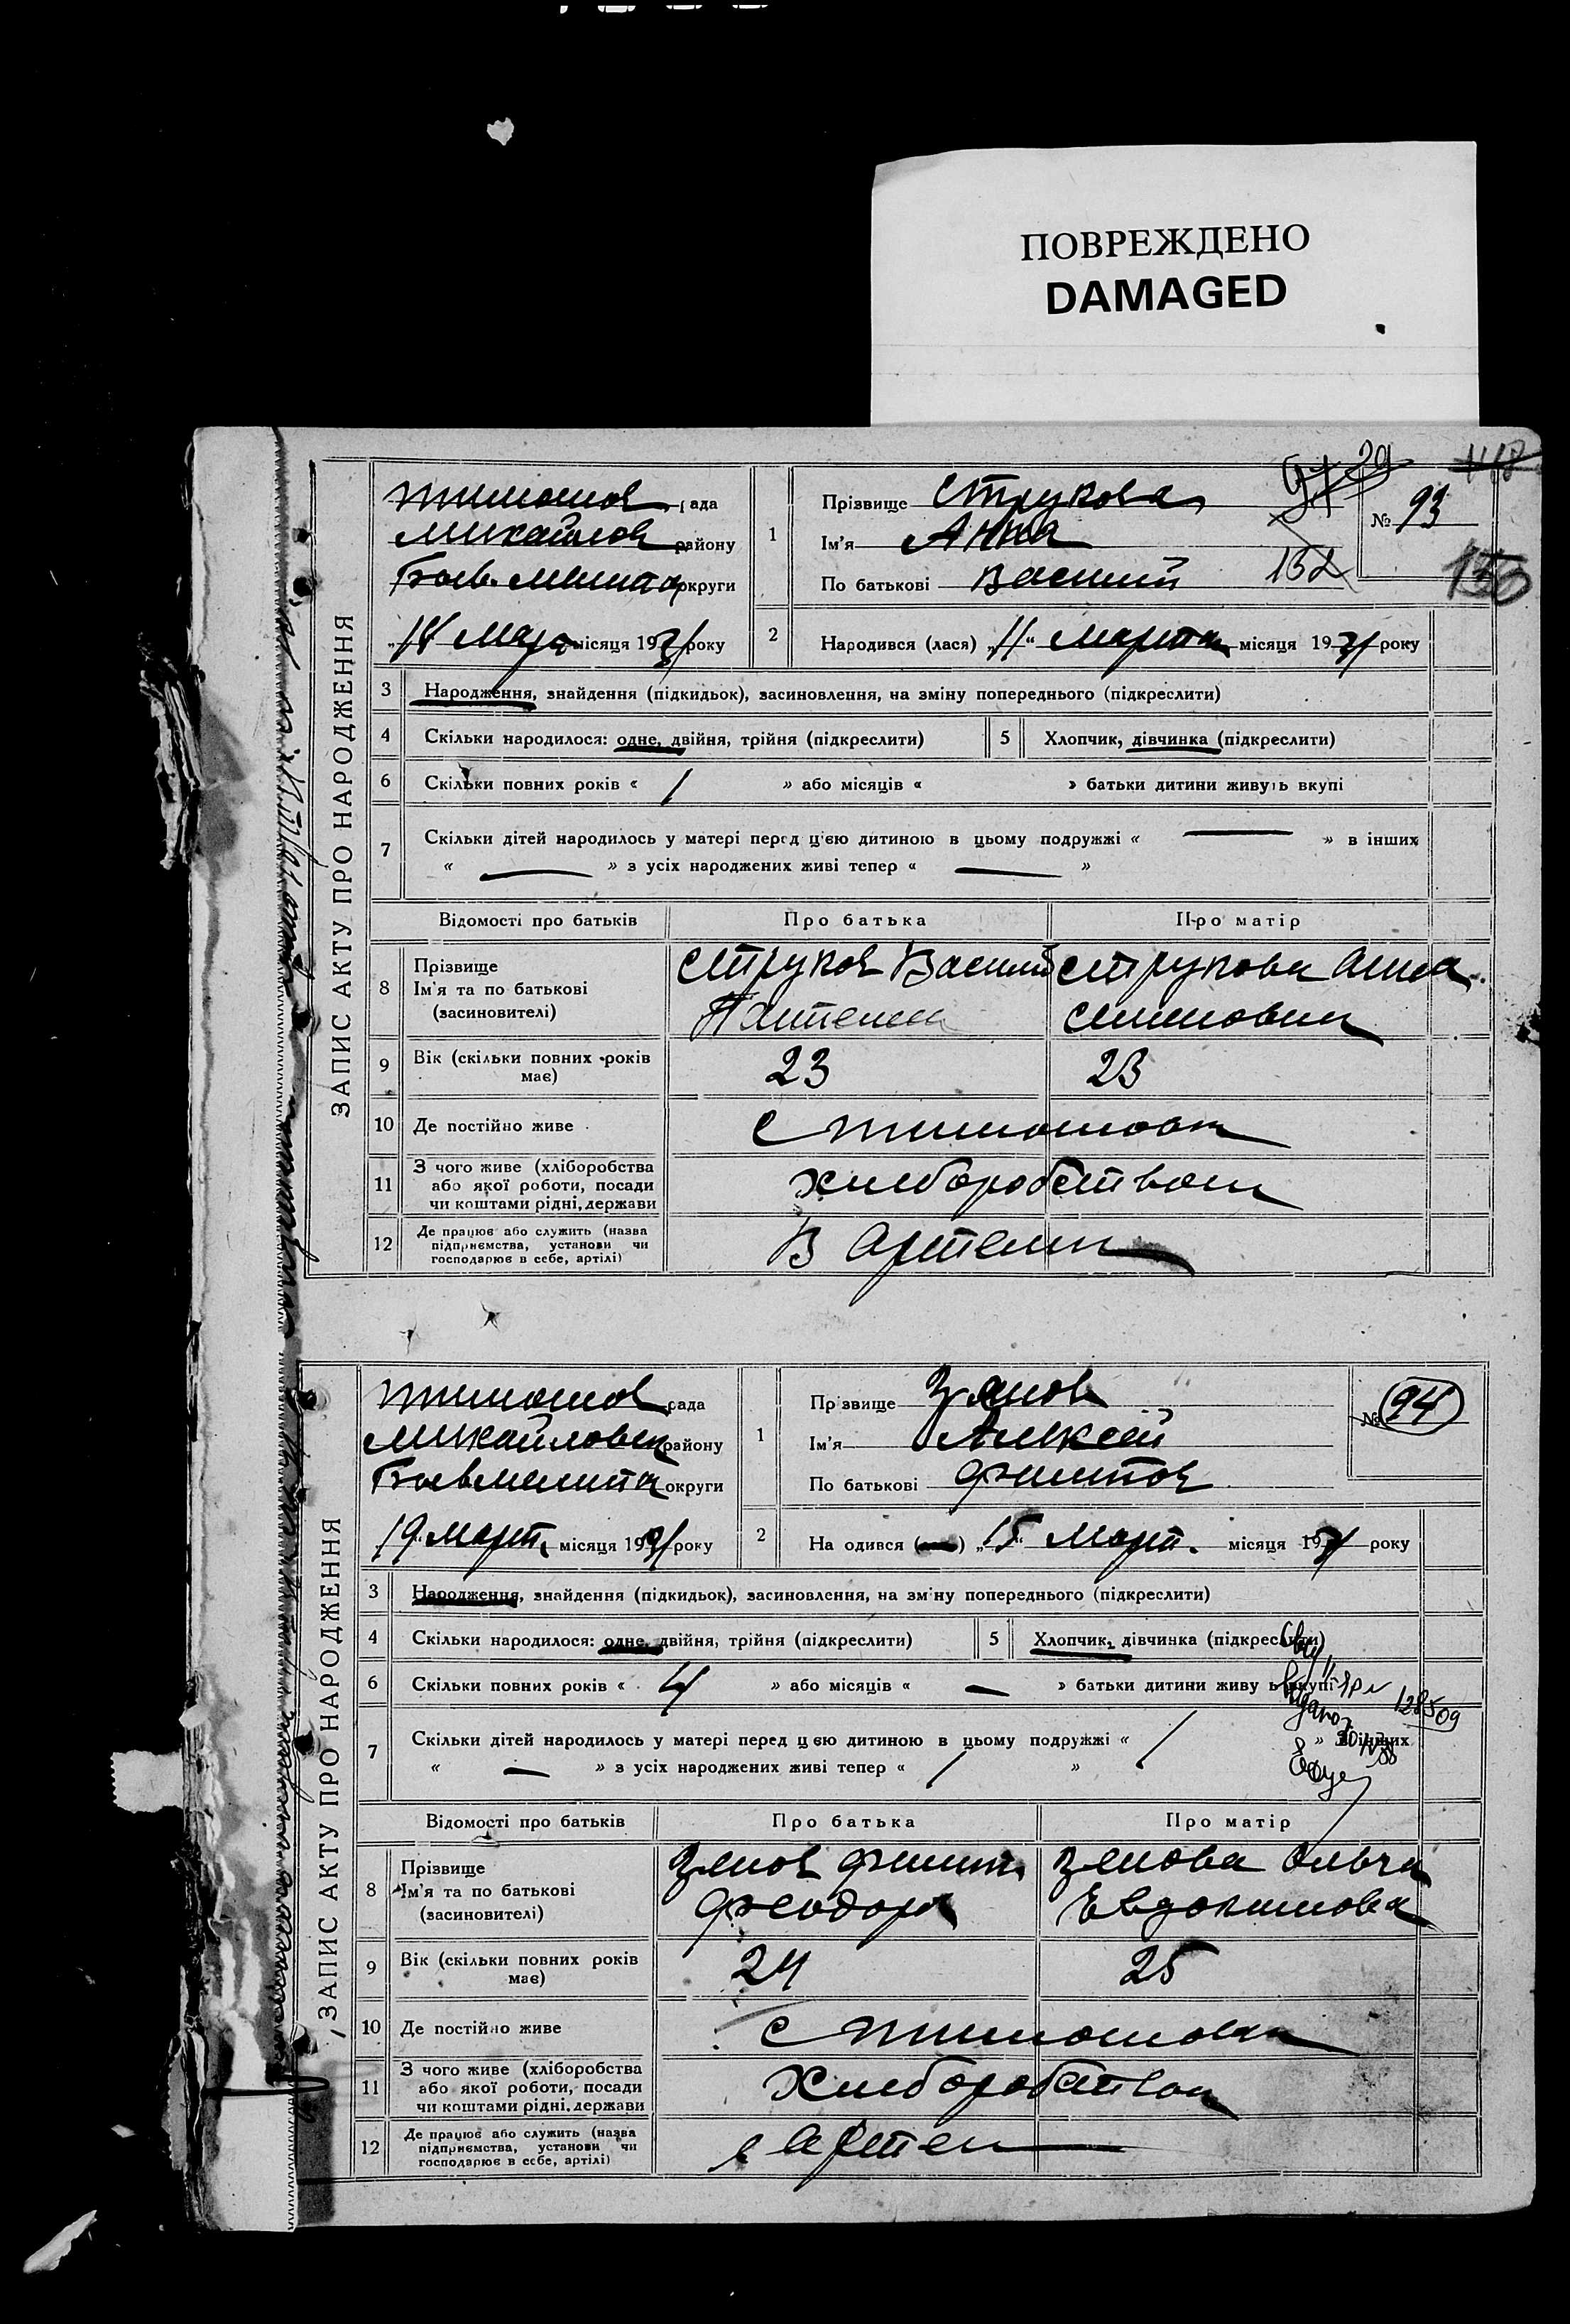 ПОВРЕЖДЕНО
DAMAGED
ЗАПИС АКТУ ПРО НАРОДЖЕННЯ
Тимошов рада
Михайлов району
округи
„18“ Март місяця 1931 року
1 Прізвище Струкова
Ім'я Анна
По батькові Василий
97 29
148
№ 93
152
150
2 Народився (лася) „11“ Марта місяця 1931 року
3 Народження, знайдення (підкидьок), засиновлення, на зміну попереднього (підкреслити)
4 Скільки народилося: одне, двійня, трійня (підкреслити) 5 Хлопчик, дівчинка (підкреслити)
6 Скільки повних років « 1 » або місяців « » батьки дитини живуть вкупі
7 Скільки дітей народилось у матері перед цією дитиною в цьому подружжі « — » в інших
« — » з усіх народжених живі тепер « — »
Відомості про батьків Про батька Про матір
8 Прізвище Ім'я та по батькові (засновителі)
Струков Василий Струкова Анна
Пантелеи
9 Вік (скільки повних років має) 23 23
10 Де постійно живе с Тимошовка
11 З чого живе (хліборобства або якої роботи, посади чи коштами рідні, держави Хлиборобством
12 Де працює або служить (назва підприємства, установи чи господарює в себе, артілі) В Артели
ЗАПИС АКТУ ПРО НАРОДЖЕННЯ
Тимошов рада
Михайловск району
округи
19 Март місяця 1931 року
1 Прізвище Зянов
Ім'я Алексей
По батькові Филипов
№ 94
2 Народився „15“ Март. місяця 1931 року
3 Народження, знайдення (підкидьок), засиновлення, на зміну попереднього (підкреслити)
4 Скільки народилося: одне, двійня, трійня (підкреслити) 5 Хлопчик, дівчинка (підкреслити)
6 Скільки повних років « 4 » або місяців « — » батьки дитини живуть вкупі
128509
7 Скільки дітей народилось у матері перед цією дитиною в цьому подружжі « 1 » в інших
« — » з усіх народжених живі тепер « 1 »
Відомості про батьків Про батька Про матір
8 Прізвище Ім'я та по батькові (засиновителі)
Зянов Филип. Зянова Ольга
Феодор Евдокимовна
9 Вік (скільки повних років має) 24 25
10 Де постійно живе с Тимошовка
11 З чого живе (хліборобства або якої роботи, посади чи коштами рідні, держави Хлиборобством
12 Де працює або служить (назва підприємства, установи чи господарює в себе, артілі) в Артел